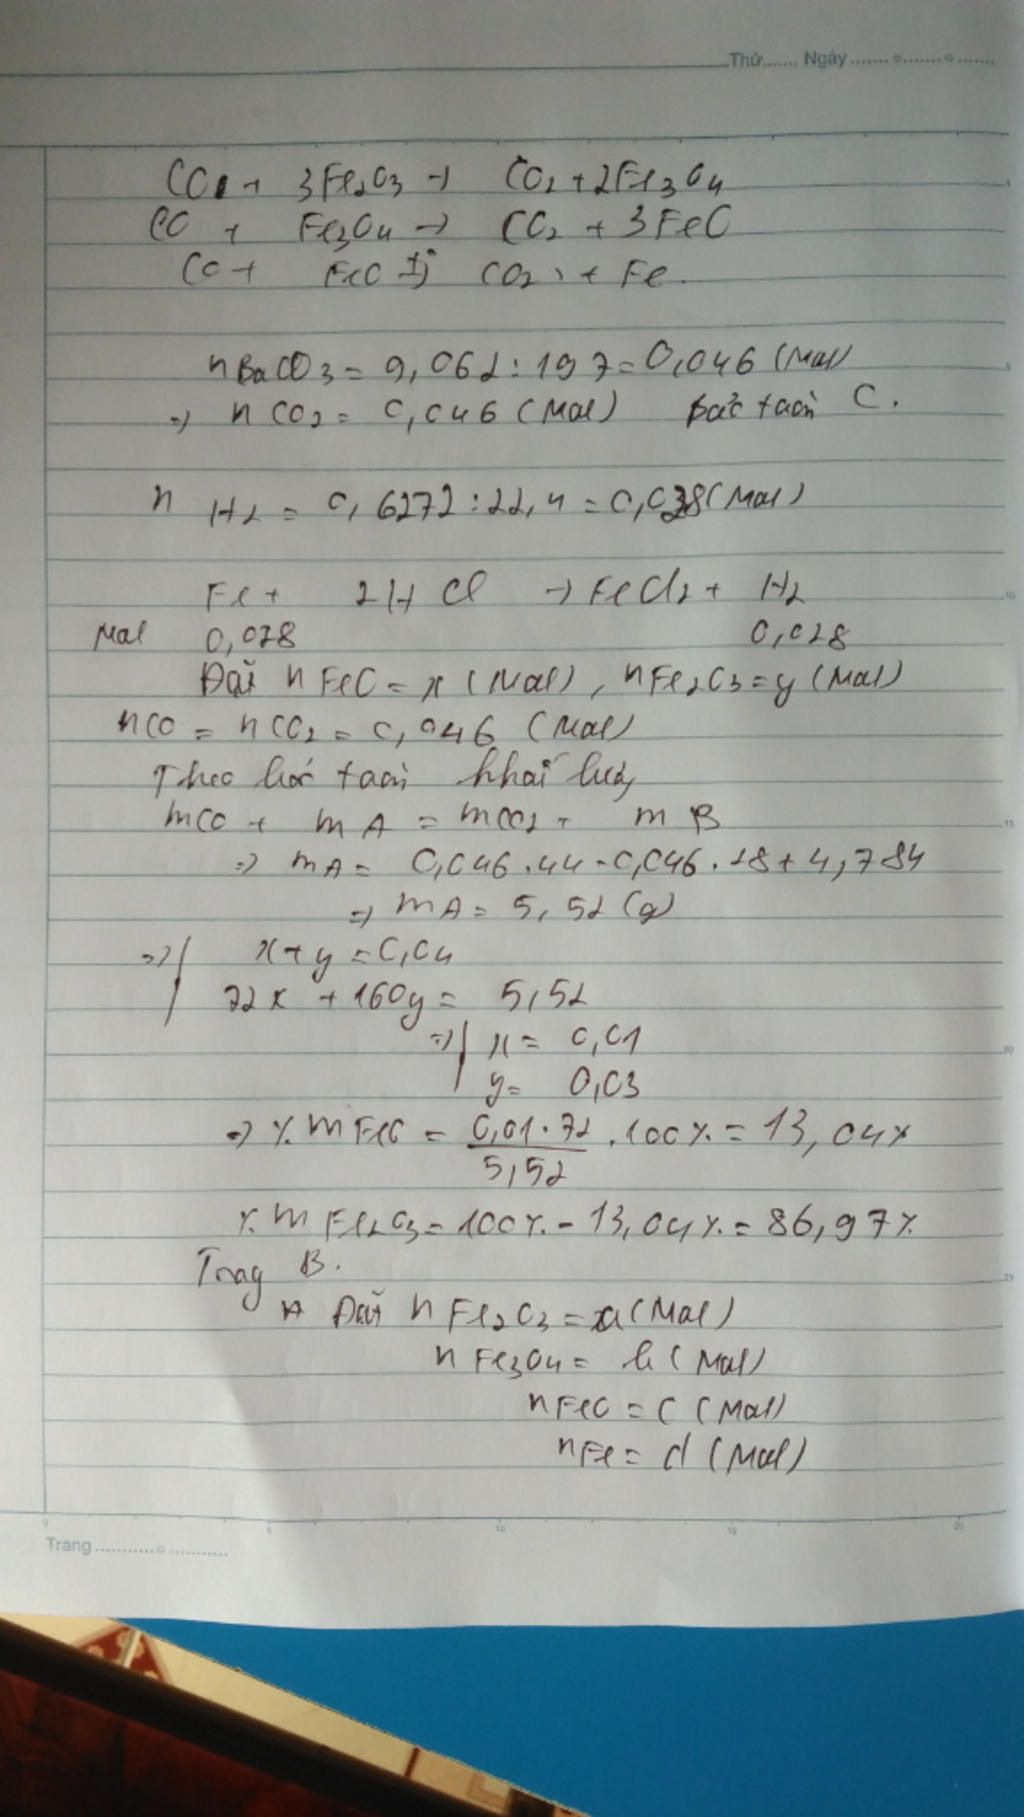 Thứ....... Ngày ........o........o.......
CO + 3Fe2O3 → CO2 + 2Fe3O4
CO + Fe3O4 → CO2 + 3FeO
CO + FeO t° → CO2 + Fe
nBaCO3 = 9,062 : 197 = 0,046 (Mol)
=> nCO2 = 0,046 (Mol) bảo toàn C.
nH2 = 0,6272 : 22,4 = 0,028 (Mol)
Fe + 2HCl → FeCl2 + H2
Mol 0,028 0,028
Đặt nFeO = x (Mol), nFe2O3 = y (Mol)
nCO = nCO2 = 0,046 (Mol)
Theo bảo toàn khối lượng
mCO + mA = mCO2 + mB
=> mA = 0,046.44 - 0,046.28 + 4,784
=> mA = 5,52 (g)
=> x + y = 0,04
72x + 160y = 5,52
=> x = 0,01
y = 0,03
=> %mFeO = 0,01.72 / 5,52 .100% = 13,04%
%mFe2O3 = 100% - 13,04% = 86,97%
Trong B.
Đặt nFe2O3 = a (Mol)
nFe3O4 = b (Mol)
nFeO = c (Mol)
nFe = d (Mol)
Trang ...........o...........